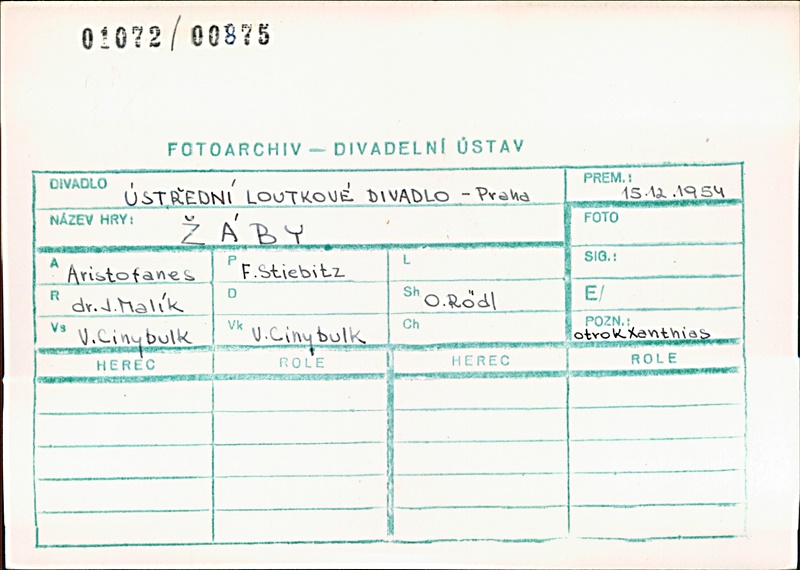 01072/00875
FOTOARCHIV — DIVADELNÍ ÚSTAV
DIVADLO ÚSTŘEDNÍ LOUTKOVÉ DIVADLO - Praha
PREM.: 15.12.1954
NÁZEV HRY: ŽÁBY
FOTO
A Aristofanes P F. Stiebitz L
SIG.:
R dr. J. Malík D Sh O. Rödl
E/
Vs V. Cinybulk Vk V. Cinybulk Ch
POZN.: otrok Xanthias
HEREC ROLE HEREC ROLE